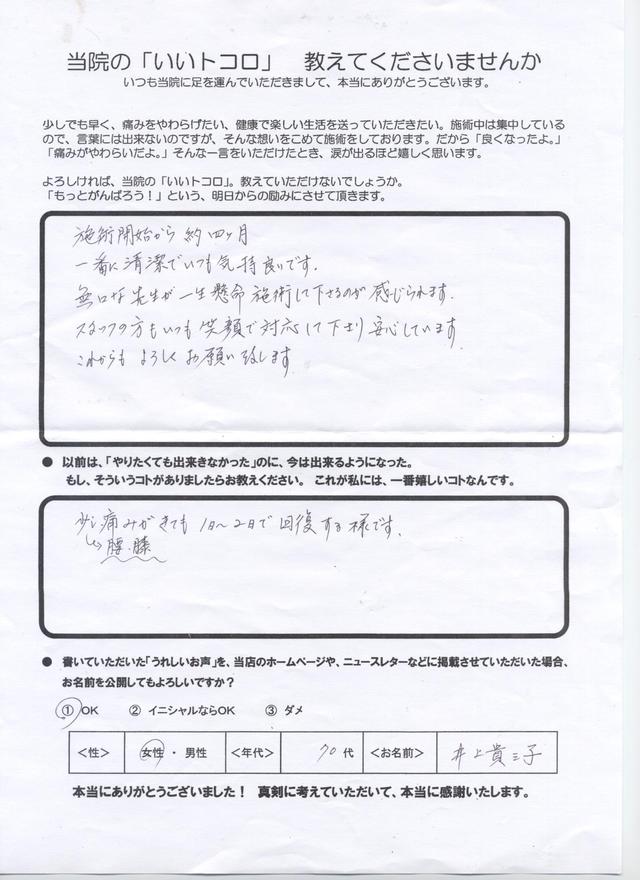 当院の「いいトコロ」　教えてくださいませんか
いつも当院に足を運んでいただきまして、本当にありがとうございます。
少しでも早く、痛みをやわらげたい、健康で楽しい生活を送っていただきたい。施術中は集中している
ので、言葉には出来ないのですが、そんな想いをこめて施術をしております。だから「良くなったよ。」
「痛みがやわらいだよ。」そんな一言をいただけたとき、涙が出るほど嬉しく思います。
よろしければ、当院の「いいトコロ」。教えていただけないでしょうか。
「もっとがんばろう！」という、明日からの励みにさせて頂きます。
施術開始から 約四ヶ月
一番に清潔でいつも気持良いです。
無口な先生が一生懸命施術して下さるのが感じられます。
スタッフの方もいつも笑顔で対応して下さり安心しています
これからもよろしくお願い致します
● 以前は、「やりたくても出来きなかった」のに、今は出来るようになった。
もし、そういうコトがありましたらお教えください。 これが私には、一番嬉しいコトなんです。
少し痛みがきても 1日〜2日で回復する様です。
腰・膝
● 書いていただいた「うれしいお声」を、当店のホームページや、ニュースレターなどに掲載させていただいた場合、
お名前を公開してもよろしいですか？
① OK　② イニシャルならOK　③ ダメ
＜性＞ 女性 ・ 男性 ＜年代＞ 70 代 ＜お名前＞ 井上貴三子
本当にありがとうございました！ 真剣に考えていただいて、本当に感謝いたします。